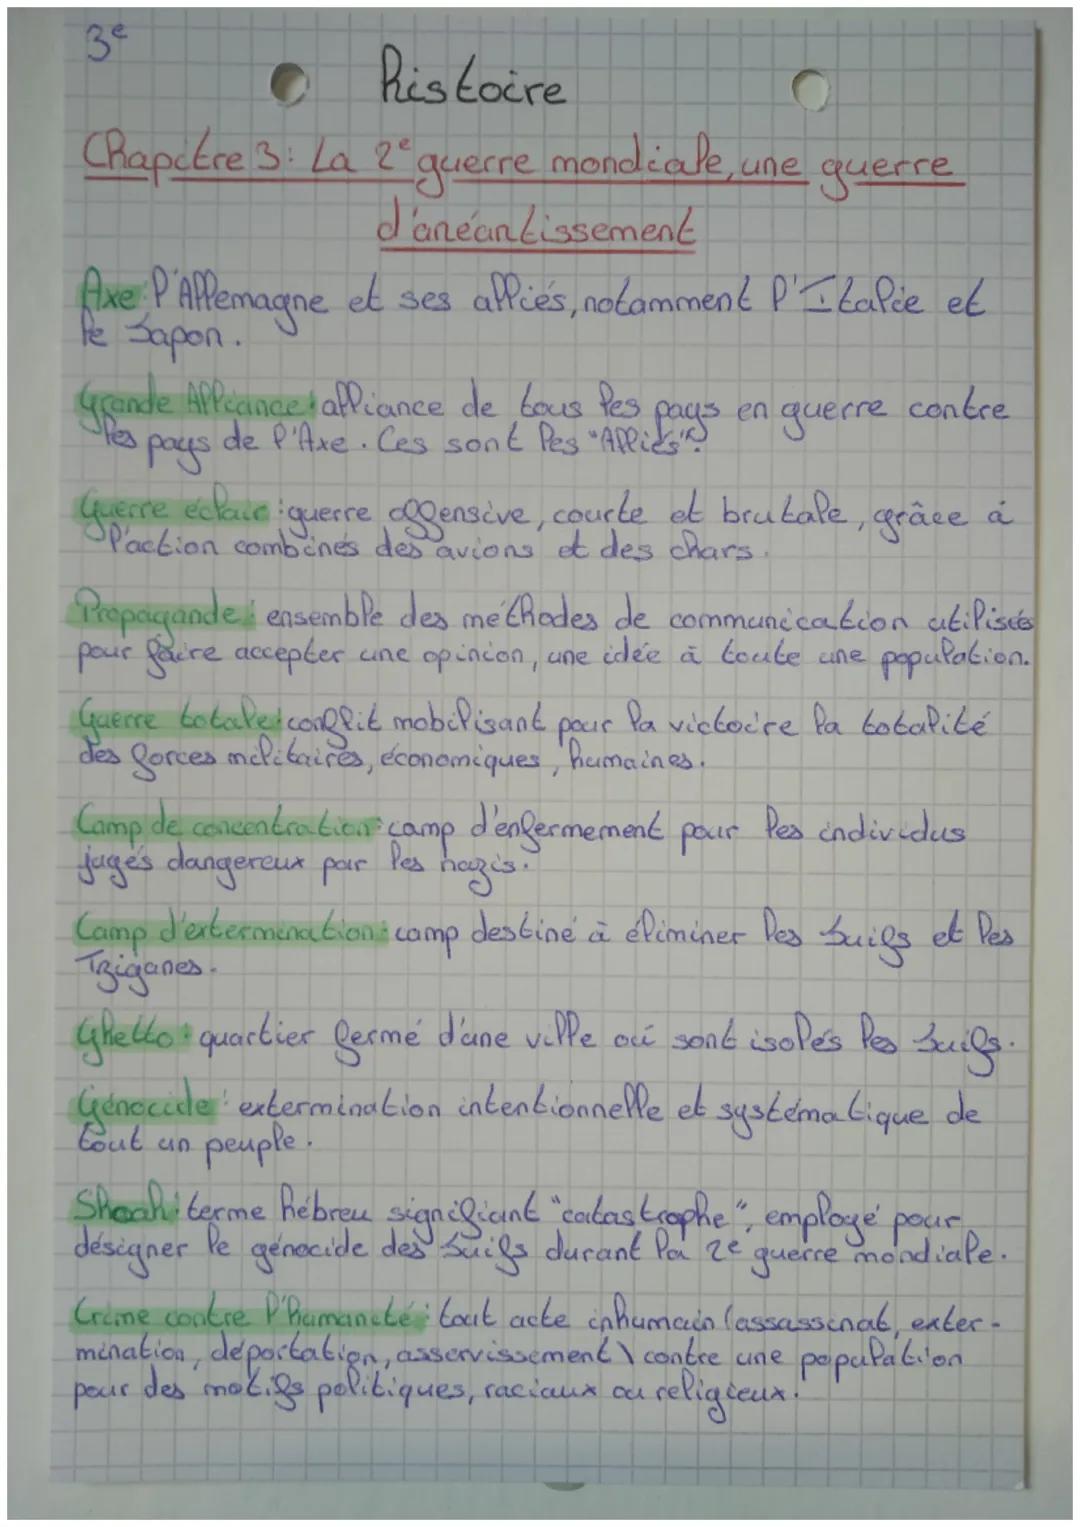 3e
histoire
Chapitre 3: La 2e guerre mondiale, une guerre
d'anéantissement
Axe: l'Allemagne et ses alliés, notamment l'Italie et
le Japon.
Grande Alliance: alliance de tous les pays en guerre contre
les pays de l'Axe. Ces sont les "Alliés".
Guerre éclair: guerre offensive, courte et brutale, grâce à
l'action combinés des avions et des chars.
Propagande: ensemble des méthodes de communication utilisés
pour faire accepter une opinion, une idée à toute une population.
Guerre totale: conflit mobilisant pour la victoire la totalité
des forces militaires, économiques, humaines.
Camp de concentration: camp d'enfermement pour les individus
jugés dangereux par les nazis.
Camp d'extermination: camp destiné à éliminer les Juifs et les
Tziganes.
Ghetto: quartier fermé d'une ville où sont isolés les Juifs.
Génocide: extermination intentionnelle et systématique de
tout un peuple.
Shoah: terme hébreu signifiant "catastrophe", employé pour
désigner le génocide des Juifs durant la 2e guerre mondiale.
Crime contre l'humanité: tout acte inhumain (assassinat, exter-
mination, déportation, asservissement) contre une population
pour des motifs politiques, raciaux ou religieux.